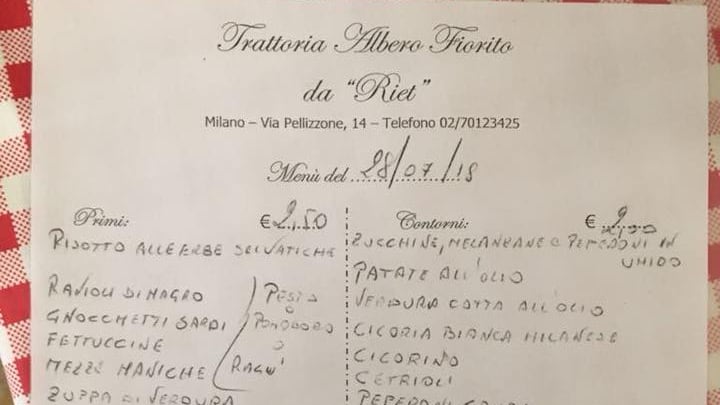 Trattoria Albero Fiorito
da "Riet"
Milano – Via Pellizzone, 14 – Telefono 02/70123425
Menù del 28/07/18
Primi: € 2,50
RISOTTO ALLE ERBE SELVATICHE
RAVIOLI DI MAGRO
GNOCCHETTI SARDI
FETTUCCINE
MEZZE MANICHE
PESTO
O
POMODORO
O
RAGU'
ZUPPA DI VERDURA
Contorni: € 2,00
ZUCCHINE, MELANZANE E PEPERONI IN
UMIDO
PATATE ALL'OLIO
VERDURA COTTA ALL'OLIO
CICORIA BIANCA MILANESE
CICORINO
CETRIOLI
PEPERONI